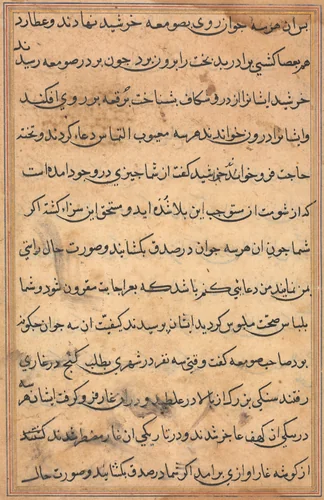 بس ان هر سه جوان روی بصومعه خرشید نهادند و عطارد
هم بعصا کشی برادر بدبخت را برون برد چون بر در صومعه رسیدند
خرشید ایشانرا از در شکاف بشناخت برقعه بر روی افکند
و ایشانرا درون خواندند هر سه معیوب التماس دعا کردند و تخته
حاجت فرو خواندند خرشید کفت از شما چیزی در وجود امده است
که از شومت از مستوجب این بلا شده اید و مستحق این سزا کشته اکر
شما جون ان هر سه جوان در صدق بکشایند و صورت حال راستی
بمن نمایند من دعا بی کنم باشد که بعز اجابت مقرون شود و شما
بلباس صحت ملبس کردید ایشان پرسیدند کیفیت ان سه جوان چکونه
بود صاحب صومعه کفت وقتی سه نفر در شهری بطلب کنج در غاری
رفتند سنکی بزرک از بالا در غلطید و در ان غار فرو کرفت ایشان هر سه
در ان کهف عاجز شدند و در تاریکی ان غار مضطر شدند
از کوشه غار اوازی بر امد اکر شما در صدق بکشایند و صورت حال